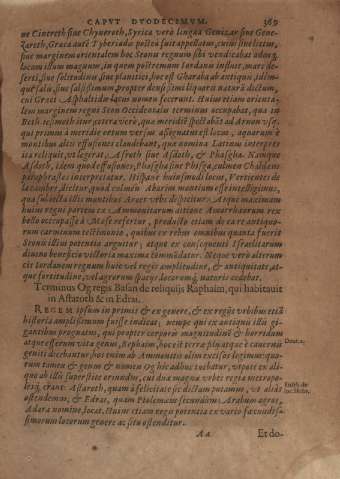 CAPVT DVODECIMVM. 369
ne Cinereth siue Chynereth, Syrica verò lingua Genezar siue Gene-
Zareth, Græca autē Tyberiadis posteà fuit appellatus, cuius siue littus,
siue marginem orientalem hoc Seonis regnum sibi vendicabat adusq,
locum illum magnum, in quem postremùm Iordanis influit, mare de-
serti, siue solitudinis, siue planitiei, hoc est Gharaba ab antiquis, idem-
que salis, siue salsissimum propter densissimi liquoris naturā dictum,
cui Græci Asphaltidæ lacus nomen fecerunt. Huius etiam orienta-
lem marginem regni Seon Occidentalis terminus occupabat, qua ad
Beth-iesimoth itur, cetera verò, quæ meridiē spectabāt ad Arnon vsq;
qui primus à meridie ortum versus assignatus est locus, aquarum è
montibus altis effusiones claudebant, quæ nomina Latinus interpres
ita reliquit, vt legerat, Asroth siue Asdoth, & Phasgha. Namque
Asdoth, idem quod effusiones; Phasgha siue Phisga, culmen Chaldæus
paraphrastes interpretatur. Hispanè huiusmodi locus, Vertientes de
la combre, dicitur, quod culmen Abarim montium esse intelligimus,
qua subiecta illis montibus Araet vrbs despicitur. Atque maximam
huius regni partem ex Ammonitarum ditione Amorrhæorum rex
bello occupasse à Mose refertur, producto etiam de ea re antiquo-
rum carminum testimonio, quibus ex rebus omnibus quanta fuerit
Seonis illius potentia arguitur, atque ex consequenti Israëlitarum
diuino beneficio victoria maxima cōmēdatur. Neque verò alterum
cis Iordanem regnum huic vel regis amplitudini, & antiquitati, at-
que fortitudine, vel agrorum spatijs locorumq; natura cedebat.
Terminus Og regis Basan de reliquijs Raphaim, qui habitauit
in Astaroth & in Edrai.
REGEM ipsum in primis & ex genere, & ex regijs vrbibus etiā
historia amplissimum fuisse indicat; nempe qui ex antiquis illis gi-
gantibus prognatus, qui propter corporis magnitudinē & horrendam
atque efferum vita genus, Rephaim, hoc est terræ filij atque è cauernis
geniti dicebantur; hos enim ab Ammonitis olim excisos legimus: quo-
rum tamen & genus & nomen Og hic adhuc trahebat, vtpote ex ali-
quo ab illis superstite oriundus, cui dua magna vrbes regia metropo-
lesq, erant. Astaroth, quam à felicitate sic dictam putamus, vt aliàs
ostendemus, & Edrai, quam Ptolemæus secundum Arabum agros,
Adara nomine, locat. Huius etiam regis potentia ex varijs fœcundis-
simorum locorum genere ac situ ostenditur.
Deut. 2.
Euseb. de
loc. Hebr.
Aa Et do-